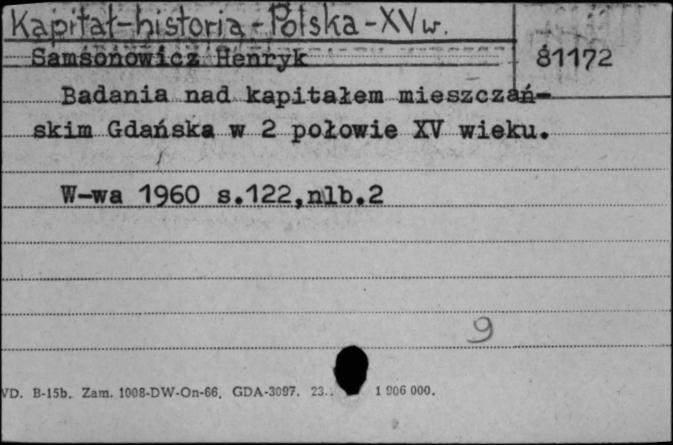 Kapitał-historia-Polska-XV w.
Samsonowicz Henryk
81172
Badania nad kapitałem mieszczań-
skim Gdańska w 2 połowie XV wieku.
W-wa 1960 s.122,nlb.2
9
VD. B-15b. Zam. 1008-DW-On-66. GDA-3097. 23. 1 906 000.